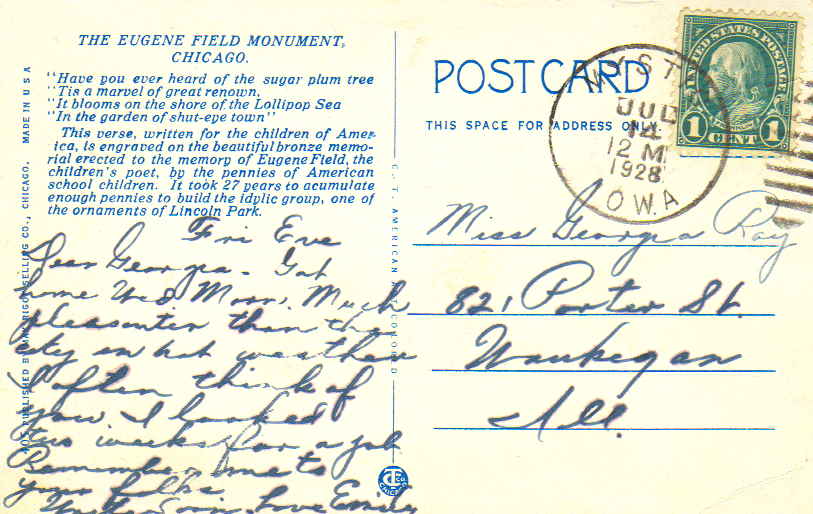 THE EUGENE FIELD MONUMENT,
CHICAGO.
"Have you ever heard of the sugar plum tree
"Tis a marvel of great renown.
"It blooms on the shore of the Lollipop Sea
"In the garden of shut-eye town"
This verse, written for the children of Amer-
ica, is engraved on the beautiful bronze memo-
rial erected to the memory of Eugene Field, the
children's poet, by the pennies of American
school children. It took 27 years to acumulate
enough pennies to build the idylic group, one of
the ornaments of Lincoln Park.
Fri Eve
Dear Georgia - Got
home Wed Morn. Much
pleasanter than the
city in hot weather
I often think of
you. I looked
two weeks for a job
Remember me to
your folks
Write soon. Love Emily
MADE IN U S A
SELLING CO., CHICAGO.
PUBLISHED BY
C. T. AMERICAN ART COLORED
POST CARD
THIS SPACE FOR ADDRESS ONLY.
JUL
14
12 M
1928
IOWA
UNITED STATES POSTAGE
1 CENT 1
Miss Georgia Ray
821 Porter St.
Waukegan
Ill.